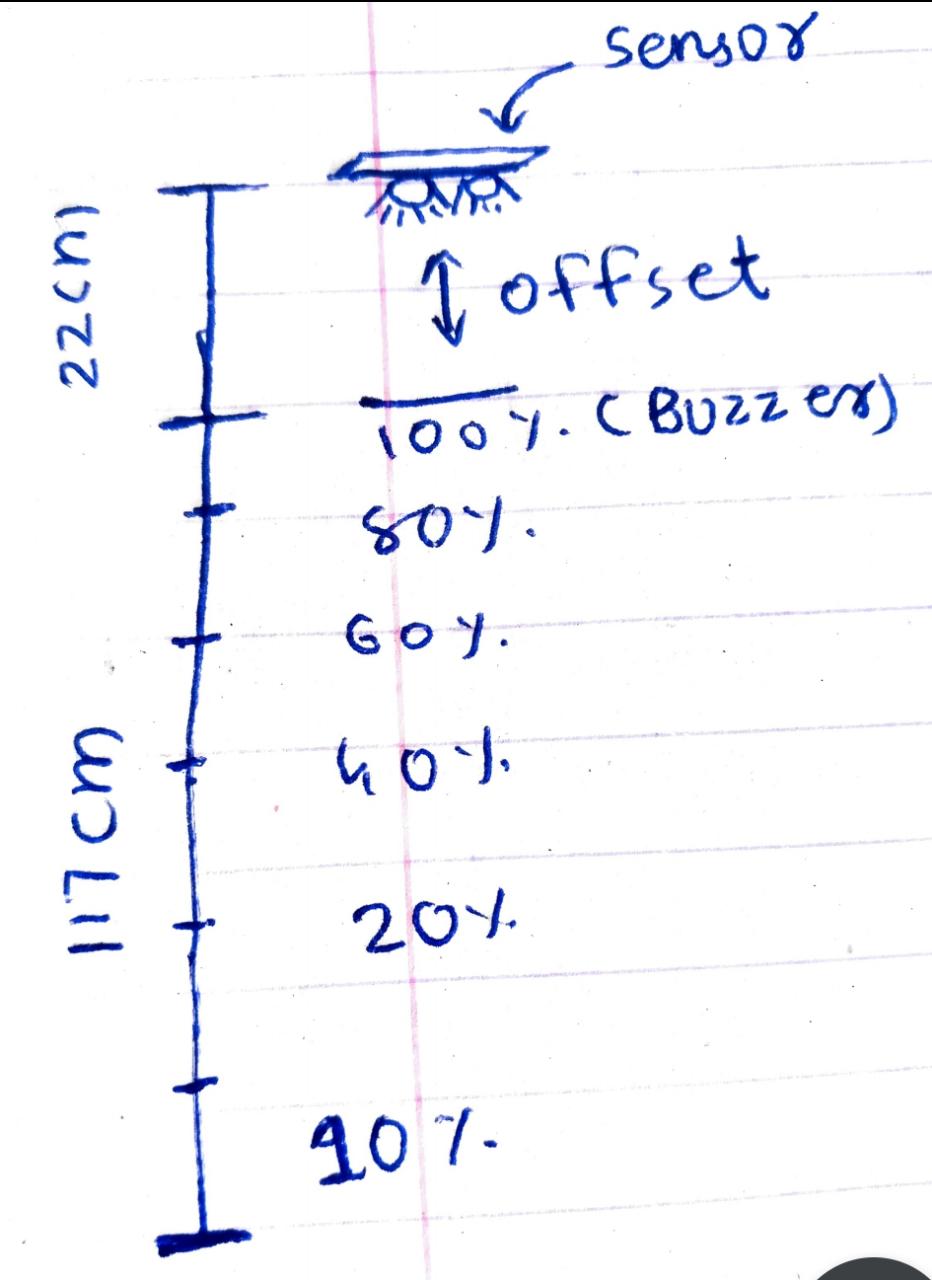 sensor
22cm
offset
100%. (Buzzer)
80%.
60%.
40%.
117cm
20%.
10%.